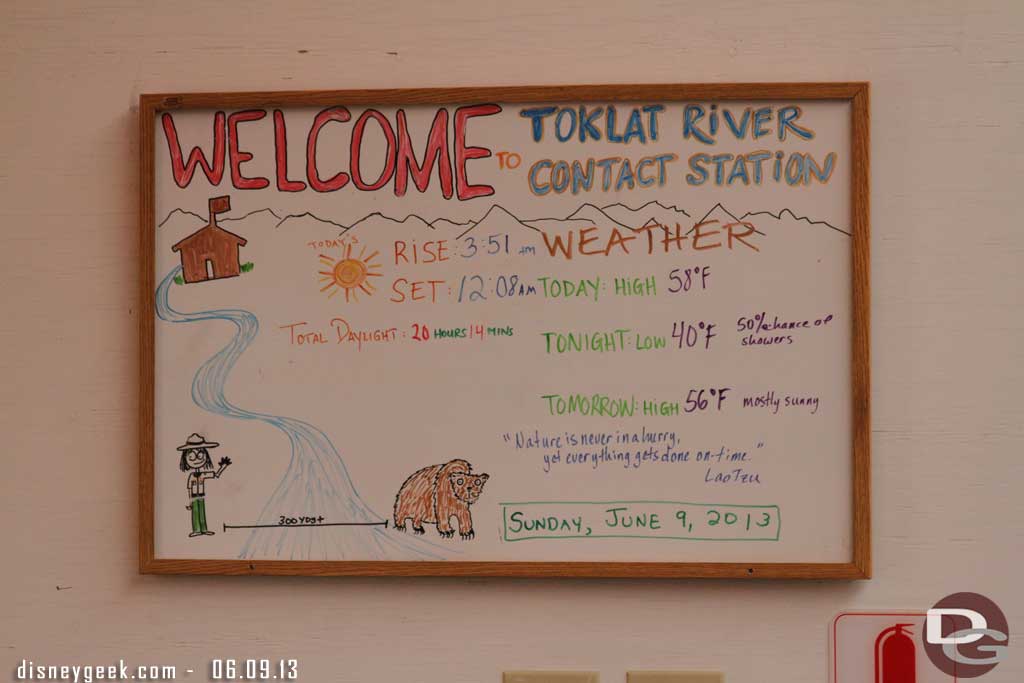 WELCOME TO TOKLAT RIVER
CONTACT STATION
TODAY'S
RISE: 3:51 AM
SET: 12:08 AM
TOTAL DAYLIGHT: 20 HOURS 14 MINS
WEATHER
TODAY: HIGH 58°F
TONIGHT: LOW 40°F 50% chance of
showers
TOMORROW: HIGH 56°F mostly sunny
"Nature is never in a hurry,
yet everything gets done on-time."
Lao Tzu
300 YDS+
SUNDAY, JUNE 9, 2013
disneygeek.com - 06.09.13
DG